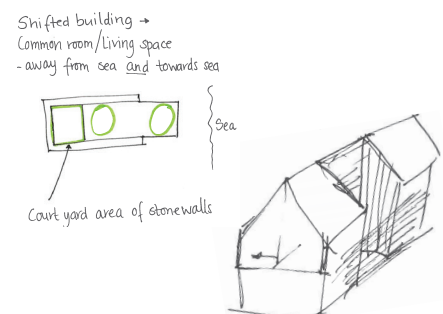 Shifted building →
Common room/Living space
- away from sea and towards sea
Sea
Court yard area of stonewalls